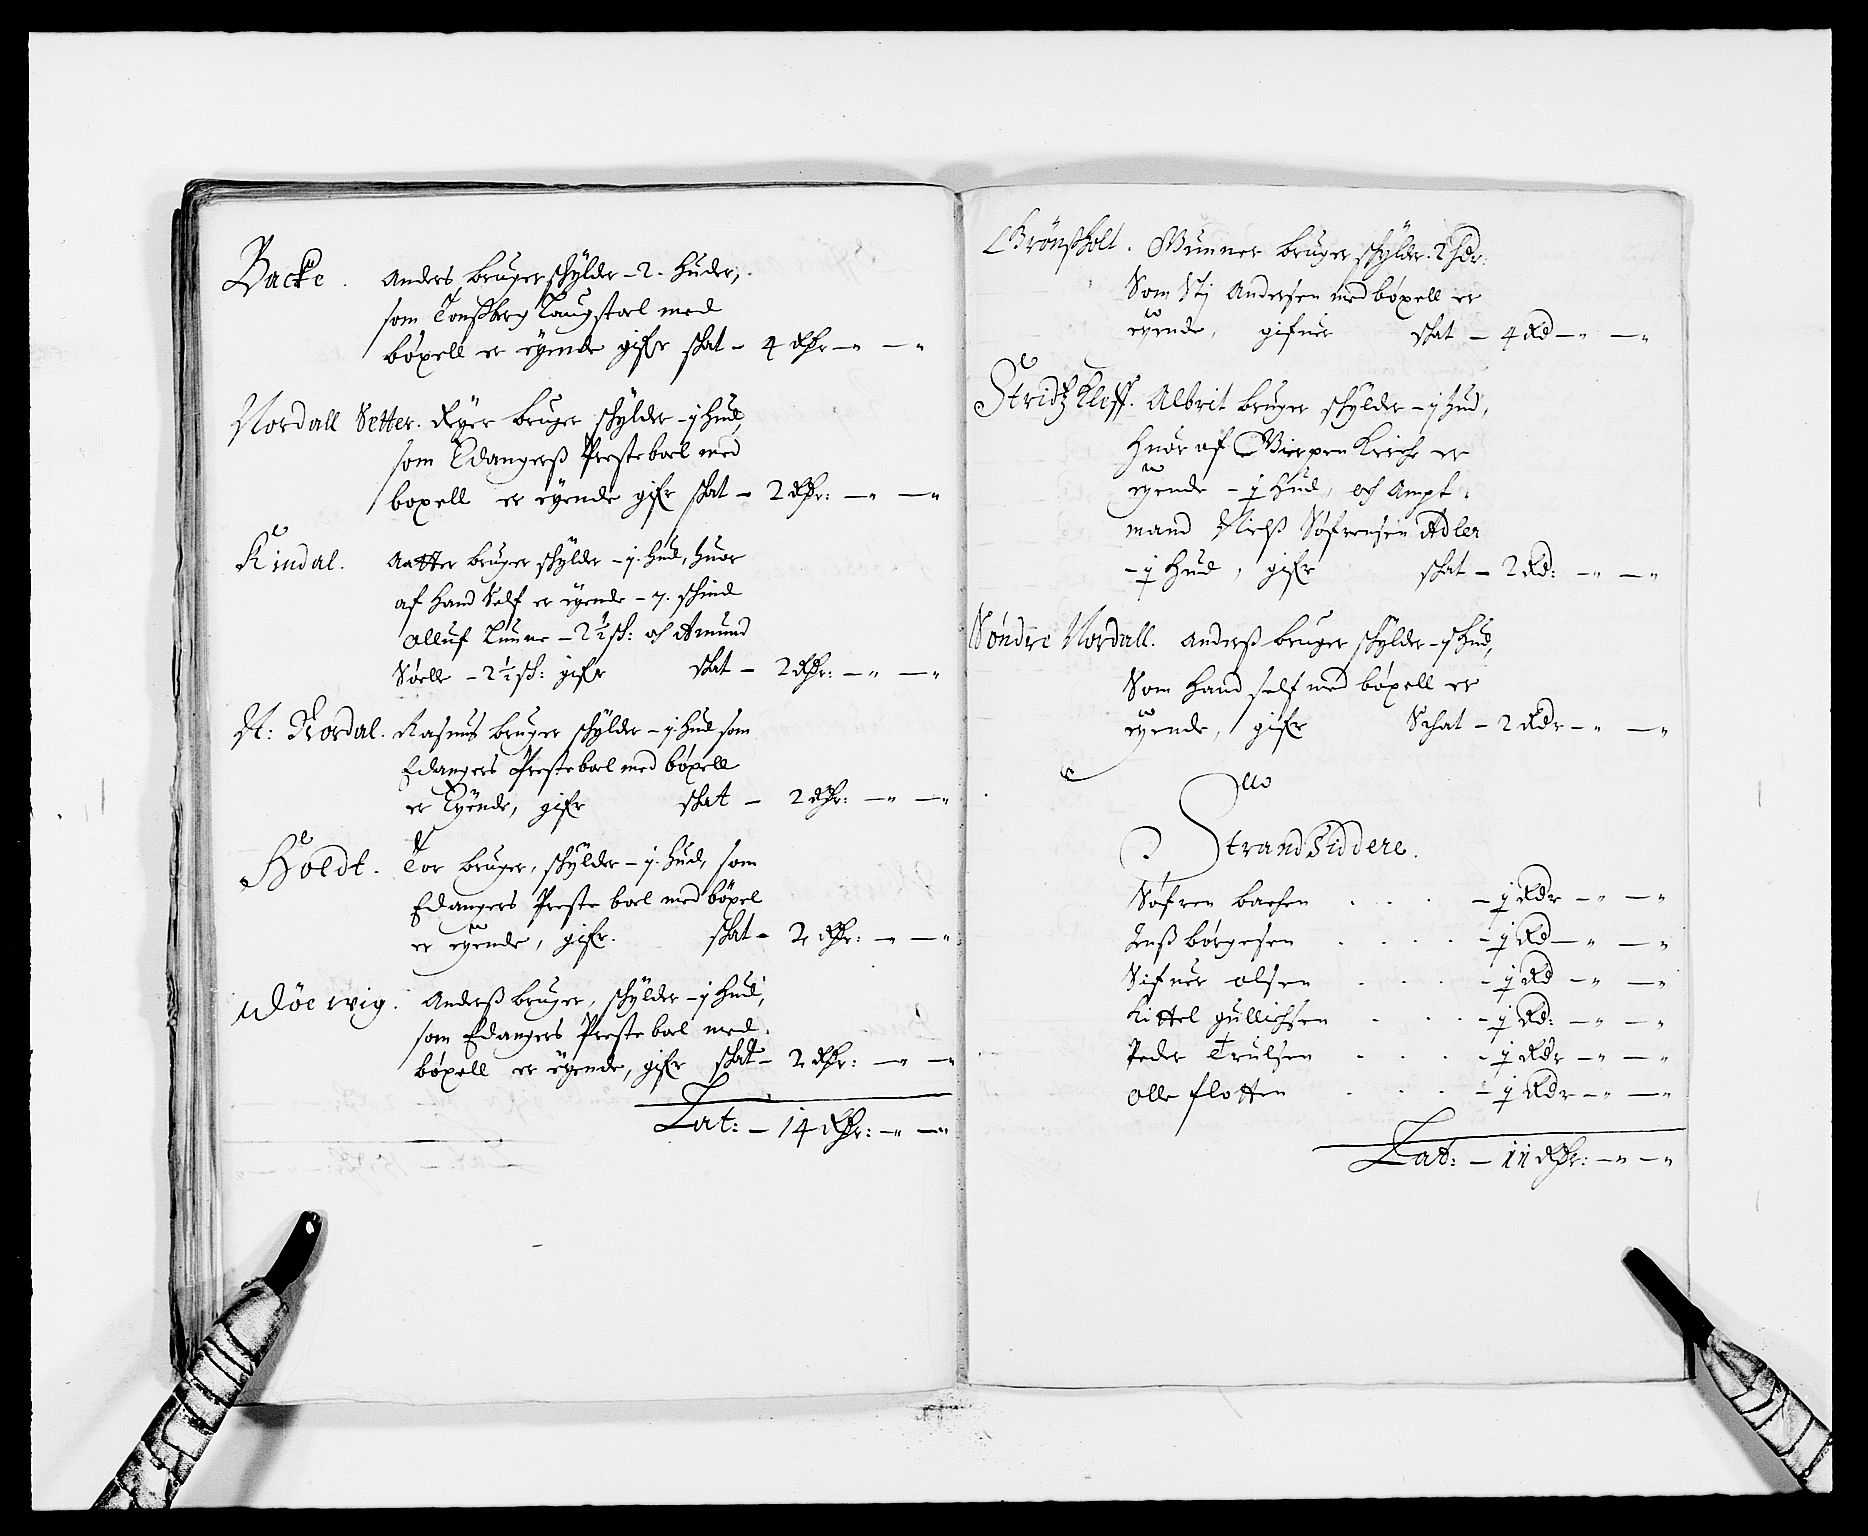 Backe. Anders bruger schylder - 2. huder,
som Tonßberg Laugstoel med
böxell er eyende gifr skat - 4 Rdr - " - "
Nordall Setter. Reyer bruger schylder - j hud,
som Edangerß Presteboel med
boxell er eyende gifr skat - 2 Rdr: - " - "
Kindal. Aatter bruger schylder - j. hud, huor
af hand Self er eyende - 7. schind
olluf Lunne - 2½ sch: och Amund
Söelle - 2½ sch: gifr skat - 2 Rdr: - " - "
St: Nordal. Rasmus bruger schylder - j. hud som
Edangers Presteboel med böxell
er Eyende, gifr skat - 2 Rdr: - " - "
Höldt. Tor bruger, schylder - j. hud, som
Edangers Preste boel med böxel
er eyende, gifr. skat - 2 Rdr: - " - "
Döe wig. Anderß bruger, schylder - j hud,
som Edangers Preste boel med
böxell er eyende, gifr skat - 2 Rdr: - " - "
Lat: - 14 Rdr: - " - "
Brönßholt. Gunner bruger schylder. 2 hdr:
Som Stj Andersen med böxell er
eyende, gifuer skat - 4 Rd - " - "
Stridtz Kleff. Albrit bruger schylder - j hud,
huor af Gierpen Kirche er
eyende - ½ hud, och Ampt-
mand Nielß Söfrensen Adler
- ½ hud, gifr skat - 2 Rd: - " - "
Söndre Nordall. Anderß bruger schylder - j hud,
Som hand self med böxell er
eyende, gifr Schat - 2 Rdr - " - "
Strand Siddere.
Söfren bachen . . . - j Rdr - " - "
Jenß börgesen . . . . - j Rd - " - "
Sifuer olsen . . . . - j Rd - " - "
Kittel gullichsen . . . - j Rd: - " - "
Peder Trulsen . . . . - j Rdr - " - "
olle flotten . . . . - j Rdr - " - "
Lat: - 11 Rdr: - " - "